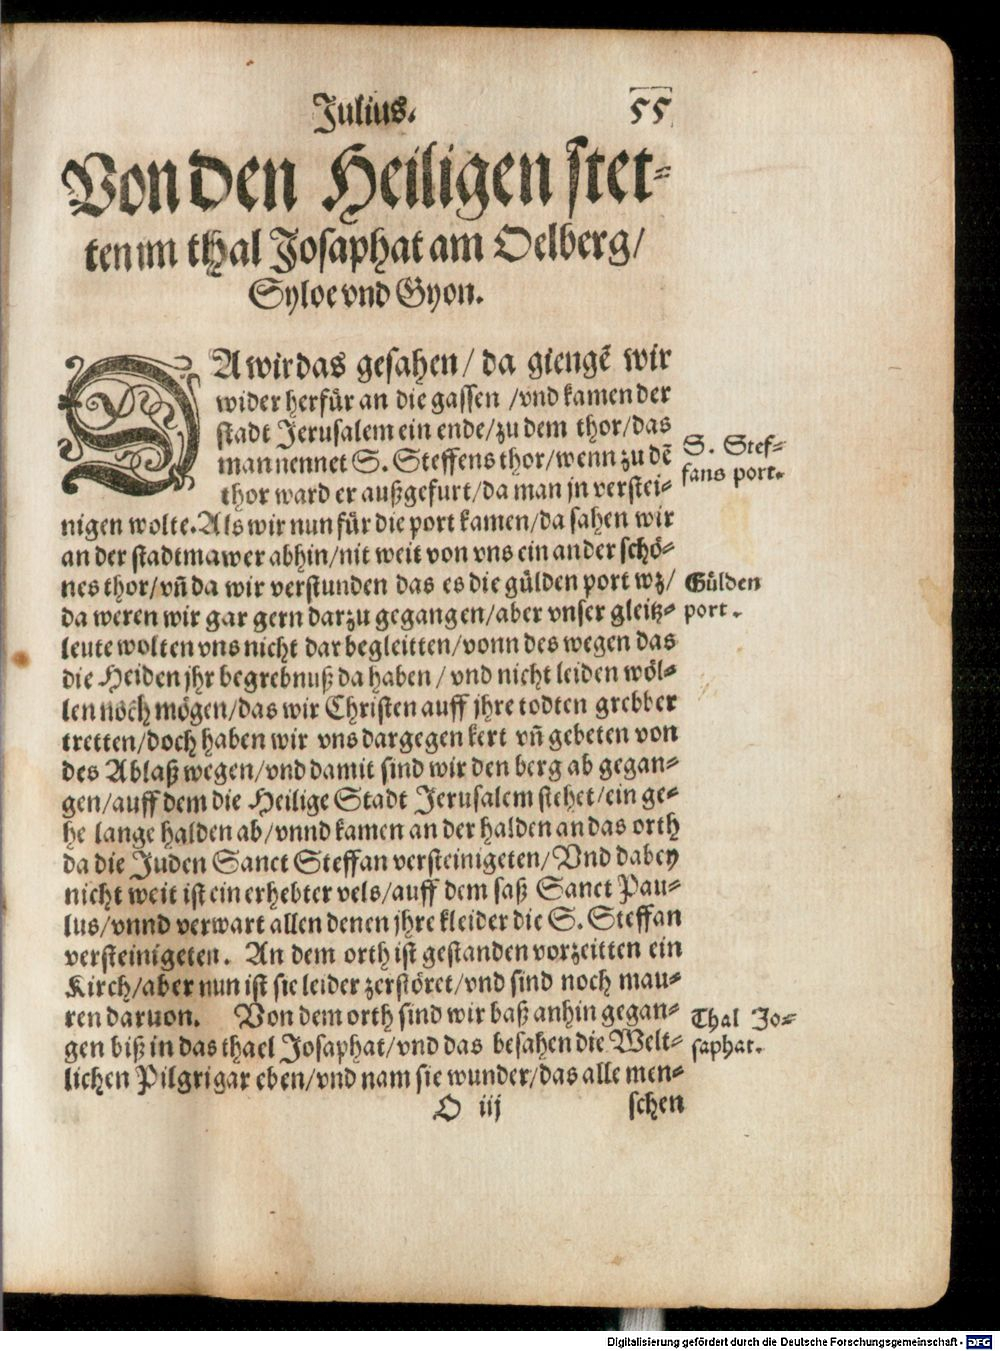 Julius.
55
Von den Heiligen stet-
ten im thal Josaphat am Oelberg/
Syloe vnd Gyon.
DA wir das gesahen/ da giengē wir
wider herfür an die gassen /vnd kamen der
stadt Jerusalem ein ende/zu dem thor/das
man nennet S. Steffens thor/wenn zu dē
thor ward er außgefurt/da man jn verstei-
nigen wolte. Als wir nun für die port kamen/da sahen wir
an der stadtmawer abhin/nit weit von vns ein ander schö-
nes thor/vñ da wir verstunden das es die gülden port wz/
da weren wir gar gern darzu gegangen/aber vnser gleitz-
leute wolten vns nicht dar begleitten/vonn des wegen das
die Heiden jhr begrebnuß da haben / vnd nicht leiden wöl-
len noch mögen/das wir Christen auff jhre todten grebber
tretten/doch haben wir vns dargegen kert vñ gebeten von
des Ablaß wegen/vnd damit sind wir den berg ab gegan-
gen/auff dem die Heilige Stadt Jerusalem stehet/ein ge-
he lange halden ab/vnnd kamen an der halden an das orth
da die Juden Sanct Steffan versteinigeten/Vnd dabey
nicht weit ist ein erhebter vels/auff dem saß Sanct Pau-
lus/vnnd verwart allen denen jhre kleider die S. Steffan
versteinigeten. An dem orth ist gestanden vorzeitten ein
Kirch/aber nun ist sie leider zerstöret/vnd sind noch mau-
ren daruon. Von dem orth sind wir baß anhin gegan-
gen biß in das thael Josaphat/vnd das besahen die Welt-
lichen Pilgrigar eben/vnd nam sie wunder/das alle men-
O iij
schen
S. Stef-
fans port.
Gülden
port.
Thal Jo-
saphat.
Digitalisierung gefördert durch die Deutsche Forschungsgemeinschaft - DFG